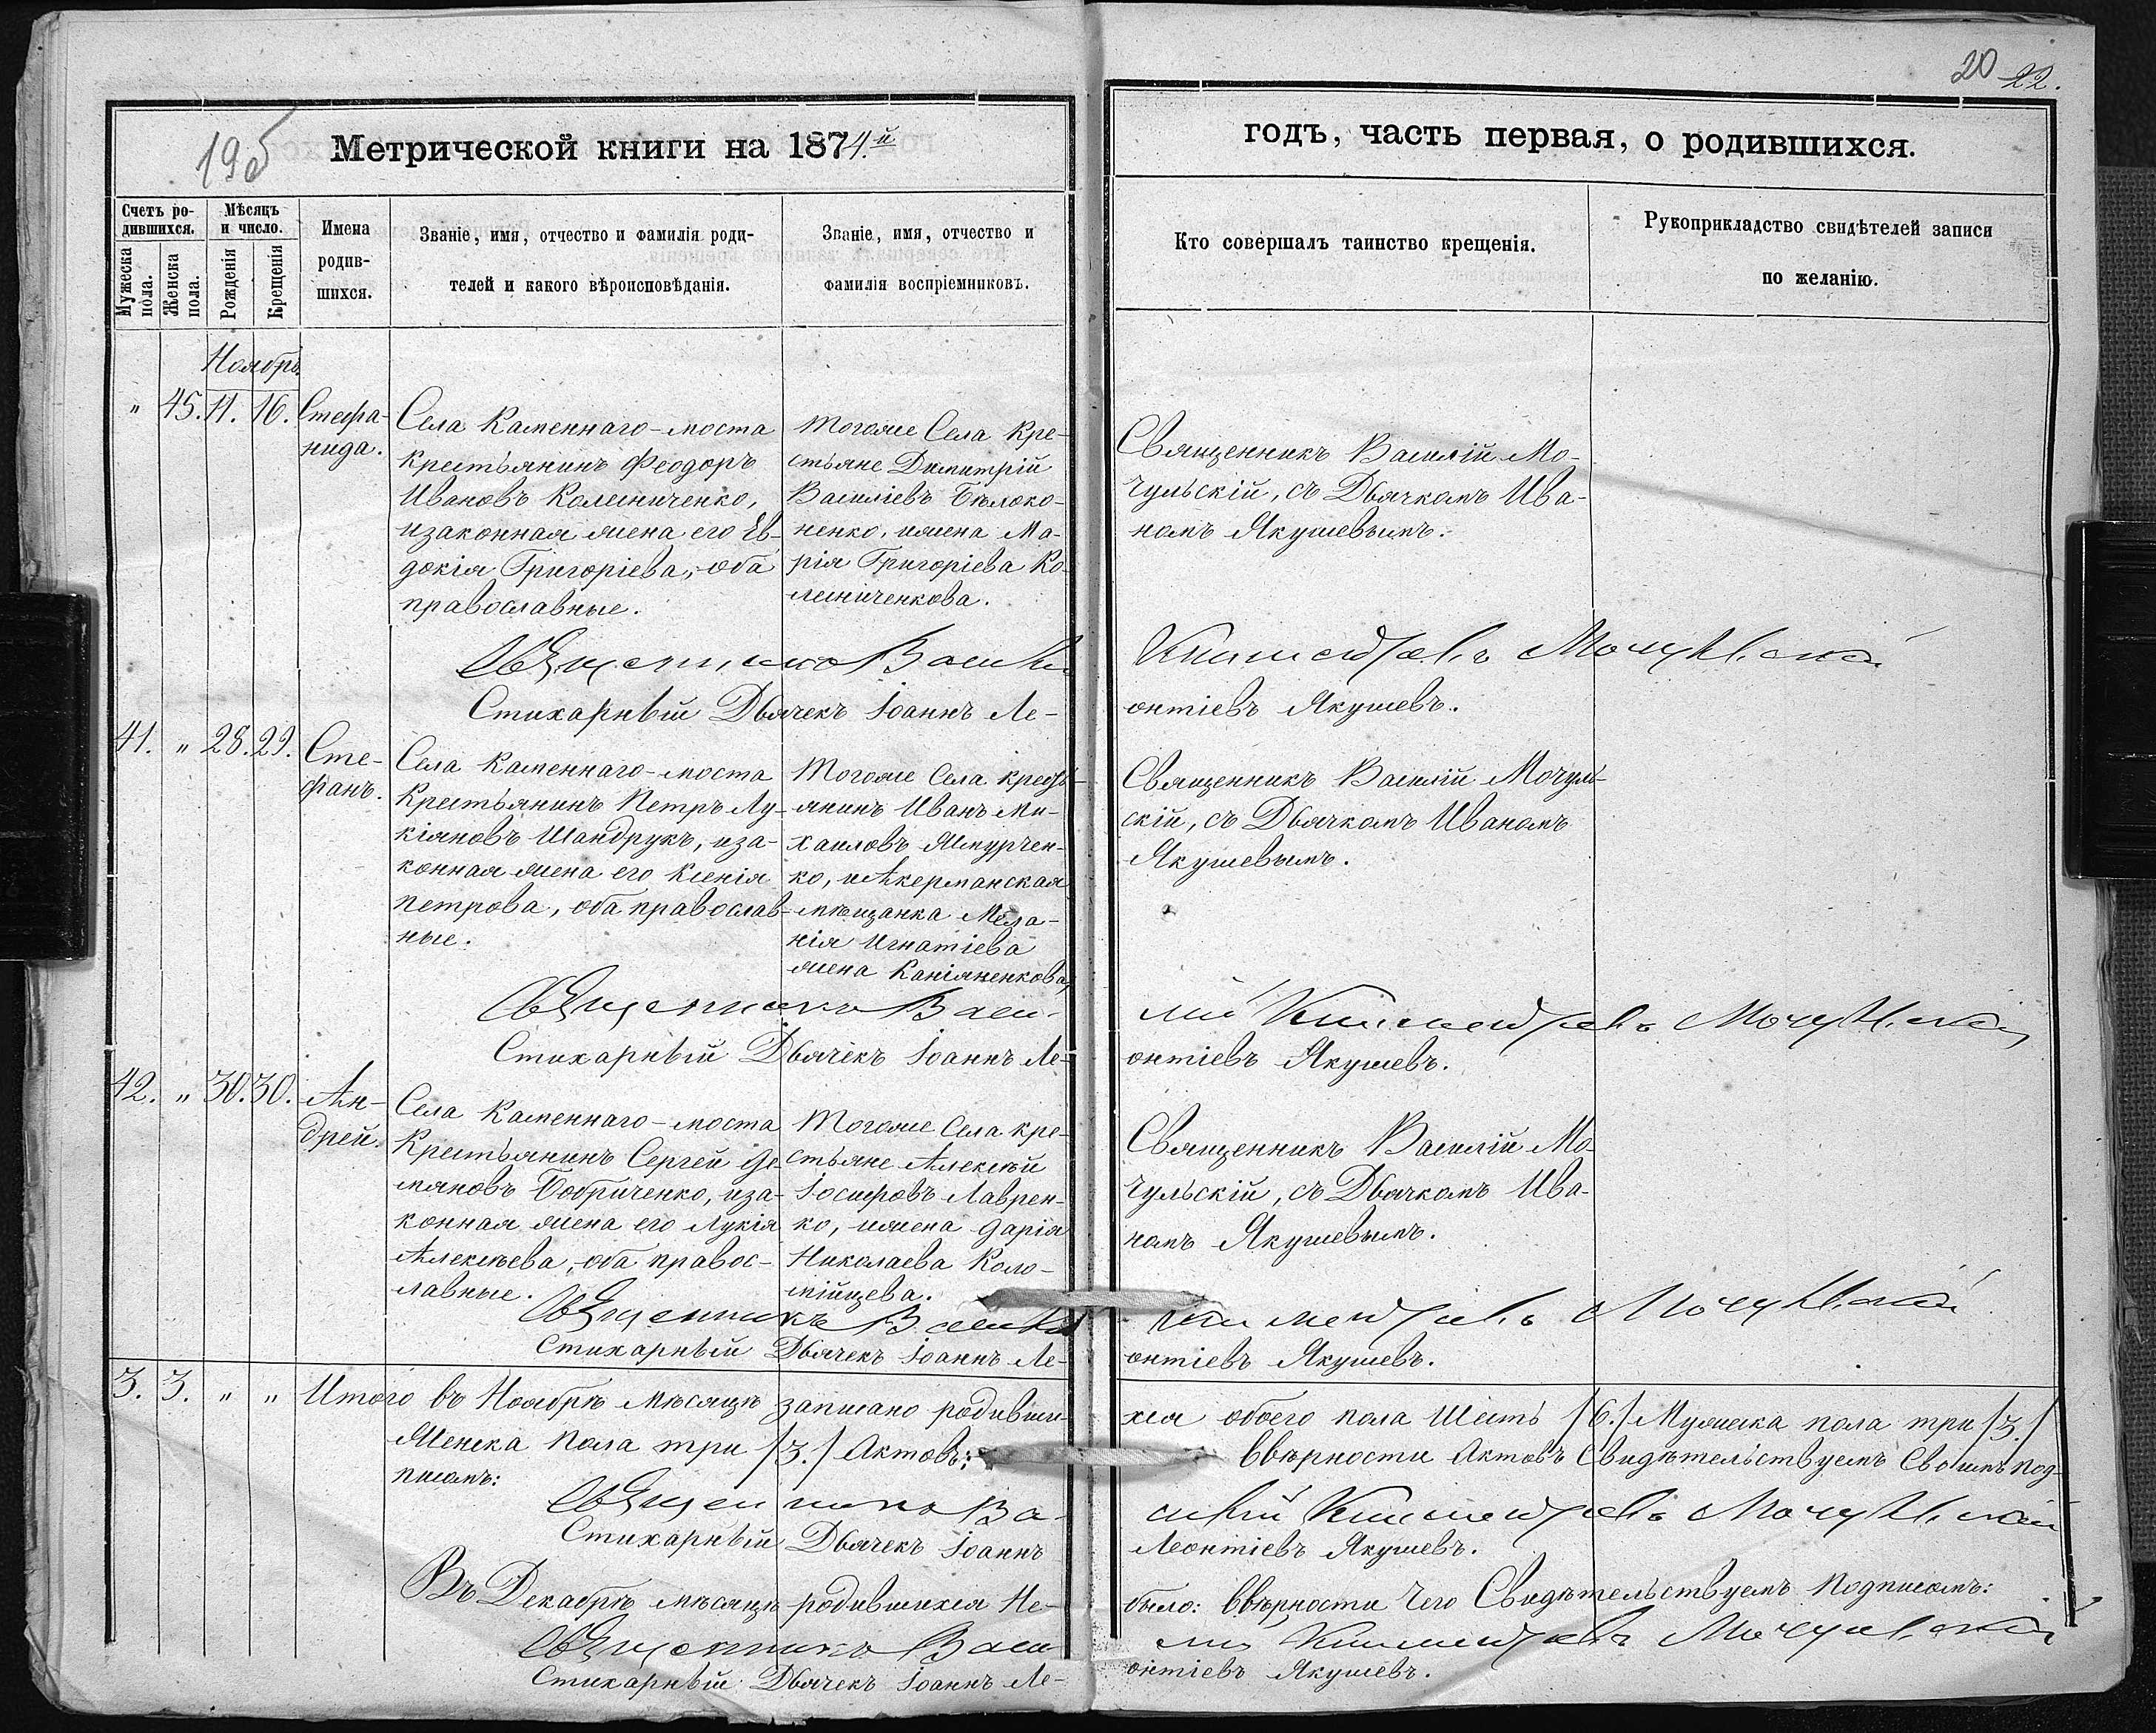 20 22.
19об
Метрической книги на 1874.й
годъ, часть первая, о родившихся.
Счетъ ро-
дившихся.
Мужеска
пола.
Женска
пола.
Мѣсяцъ
и число.
Рожденія
Крещенія
Имена
родив-
шихся.
Званіе, имя, отчество и фамилія роди-
телей и какого вѣроисповѣданія.
Званіе, имя, отчество и
фамилія воспріемниковъ.
Кто совершалъ таинство крещенія.
Рукоприкладство свидѣтелей записи
по желанію.
Ноябрь.
" 45. 11. 16.
Стефа-
нида.
Села Каменнаго-моста
крестьянинъ Феодоръ
Ивановъ Колесниченко,
изаконная жена его Ев-
докія Григоріева, оба
православные.
Тогоже Села Кре-
стьяне Димитрій
Василіевъ Бѣлоко-
ненко, ижена Ма-
рія Григоріева Ко-
лесниченкова.
Священникъ Василій Мо-
чульскій, съ Дьячкомъ Ива-
номъ Якушевымъ.
Священникъ Васили
Мочульскій
Стихарный Дьячекъ Іоаннъ Ле-
онтіевъ Якушевъ.
41. " 28. 29.
Сте-
фанъ.
Села Каменнаго-моста
Крестьянинъ Петръ Лу-
кіяновъ Шандрукъ, иза-
конная жена его Ксенія
Петрова, оба православ-
ные.
Тогоже Села кресть-
янинъ Иванъ Ми-
хаиловъ Жмурчен-
ко, иАкерманская
мѣщанка Мела-
нія Игнатіева
жена
Священникъ Василій Мочуль-
скій, съ Дьячкомъ Иваномъ
Якушевымъ.
Священникъ Васи-
лій Мочульскій
Стихарный Дьячекъ Іоаннъ Ле-
онтіевъ Якушевъ.
42. " 30. 30.
Ан-
дрей.
Села Каменнаго-моста
Крестьянинъ Сергей Де-
мяновъ Бобриченко, иза-
конная жена его Лукія
Алексѣева, оба правос-
лавные.
Тогоже Села кре-
стьяне Алексѣй
Іосифовъ Лаврен-
ко, ижена Дарія
Николаева Коло-
мійцева.
Священникъ Василій Мо-
чульскій, съ Дьячкомъ Ива-
номъ Якушевымъ.
Священникъ Васили
Мочульскій
Стихарный Дьячекъ Іоаннъ Ле-
онтіевъ Якушевъ.
3. 3. " " Итого въ Ноябрѣ мѣсяцѣ записано родивши-
хся обоего пола Шесть /6./ Мужеска пола три /3./
Женска пола три /3./ Актовъ;
Ввѣрности Актовъ Свидѣтельствуемъ Своимъ под-
писомъ:
Священникъ Ва-
силій Мочульскій
Стихарный Дьячекъ Іоаннъ
Леонтіевъ Якушевъ.
Въ Декабрѣ мѣсяцѣ родившихся Не-
было: Ввѣрности Чего Свидѣтельствуемъ Подписомъ:
Священникъ Васи-
лій Мочульскій
Стихарный Дьячекъ Іоаннъ Ле-
онтіевъ Якушевъ.